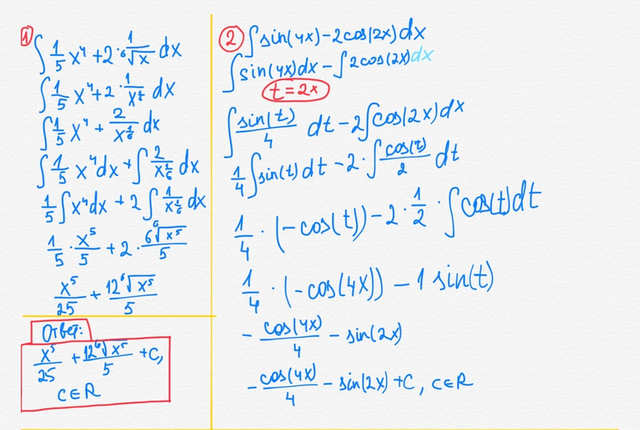 1
∫ 1/5 x⁴ + 2 · 1/⁶√x dx
∫ 1/5 x⁴ + 2 · 1/x^(1/6) dx
∫ 1/5 x⁴ + 2/x^(1/6) dx
∫ 1/5 x⁴ dx + ∫ 2/x^(1/6) dx
1/5 ∫ x⁴ dx + 2 ∫ 1/x^(1/6) dx
1/5 · x⁵/5 + 2 · 6 ⁶√x⁵/5
x⁵/25 + 12 ⁶√x⁵/5
Ответ:
x⁵/25 + 12 ⁶√x⁵/5 + C,
C∈R
2
∫ sin(4x) - 2cos(2x) dx
∫ sin(4x) dx - ∫ 2cos(2x) dx
t = 2x
∫ sin(t)/4 dt - 2 ∫ cos(2x) dx
1/4 ∫ sin(t) dt - 2 · ∫ cos(t)/2 dt
1/4 · (-cos(t)) - 2 · 1/2 · ∫ cos(t) dt
1/4 · (-cos(4x)) - 1 sin(t)
- cos(4x)/4 - sin(2x)
- cos(4x)/4 - sin(2x) + C, C∈R